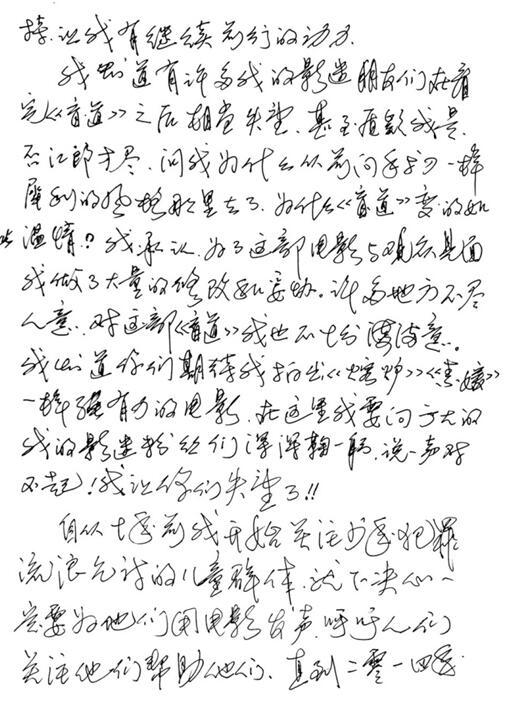 持.让我有继续前行的动力.
我知道有许多我的影迷朋友们在看
完《盲道》之后相当失望.甚至质疑我是
否江郎才尽.问我为什么从前同手术刀一样
犀利的风格那里去了.为什么《盲道》变的如
此温情?我承认.为了这部电影与观众见面
我做了大量的修改和妥协。许多地方不尽
人意.对这部《盲道》我也不十分满意.
我知道你们期待我拍出《熔炉》《素媛》
一样强有力的电影.在这里我要向广大的
我的影迷粉丝们深深鞠一躬.说一声对
不起!我让你们失望了!!
自从十年前我开始关注少年犯罪
流浪乞讨的儿童群体.就下决心一
定要为他们用电影发声.呼吁人们
关注他们帮助他们.直到二零一四年